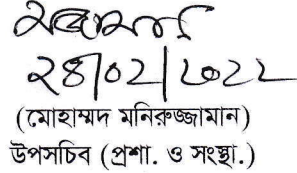 ২৪/০২/২০২২
(মোহাম্মদ মনিরুজ্জামান)
উপসচিব (প্রশা. ও সংস্থা.)